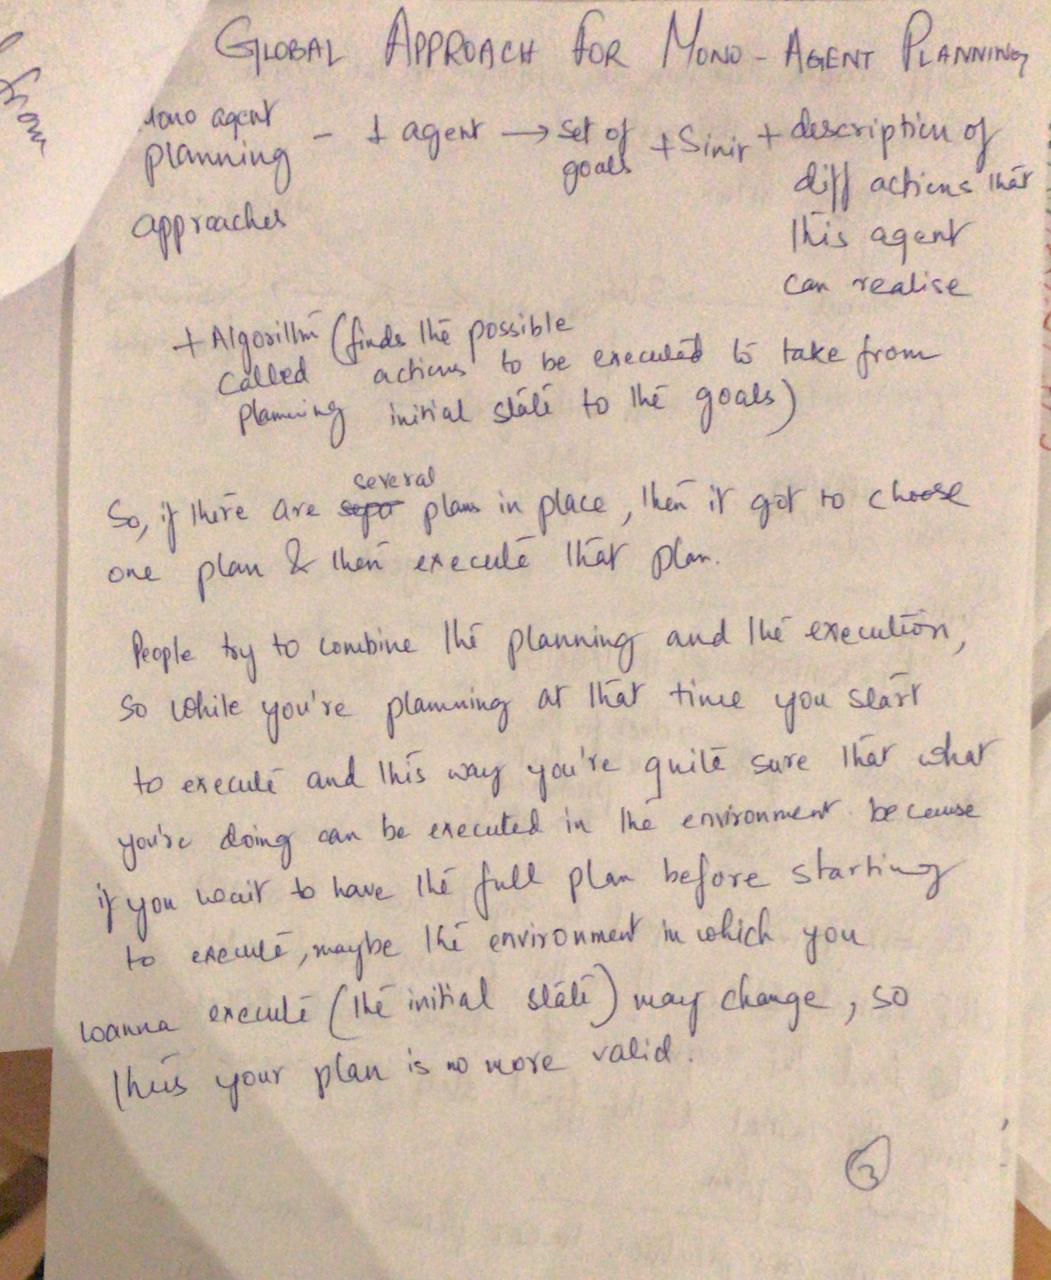 GLOBAL APPROACH FOR MONO-AGENT PLANNING
Mono agent planning approaches - 1 agent → set of goals + Sinit + description of diff actions that this agent can realise
+ Algorithm called planning (finds the possible actions to be executed to take from initial state to the goals)
So, if there are several plans in place, then it got to choose
one plan & then execute that plan.
People try to combine the planning and the execution,
so while you're planning at that time you start
to execute and this way you're quite sure that what
you're doing can be executed in the environment because
if you wait to have the full plan before starting
to execute, maybe the environment in which you
wanna execute (the initial state) may change, so
thus your plan is no more valid.
3
from